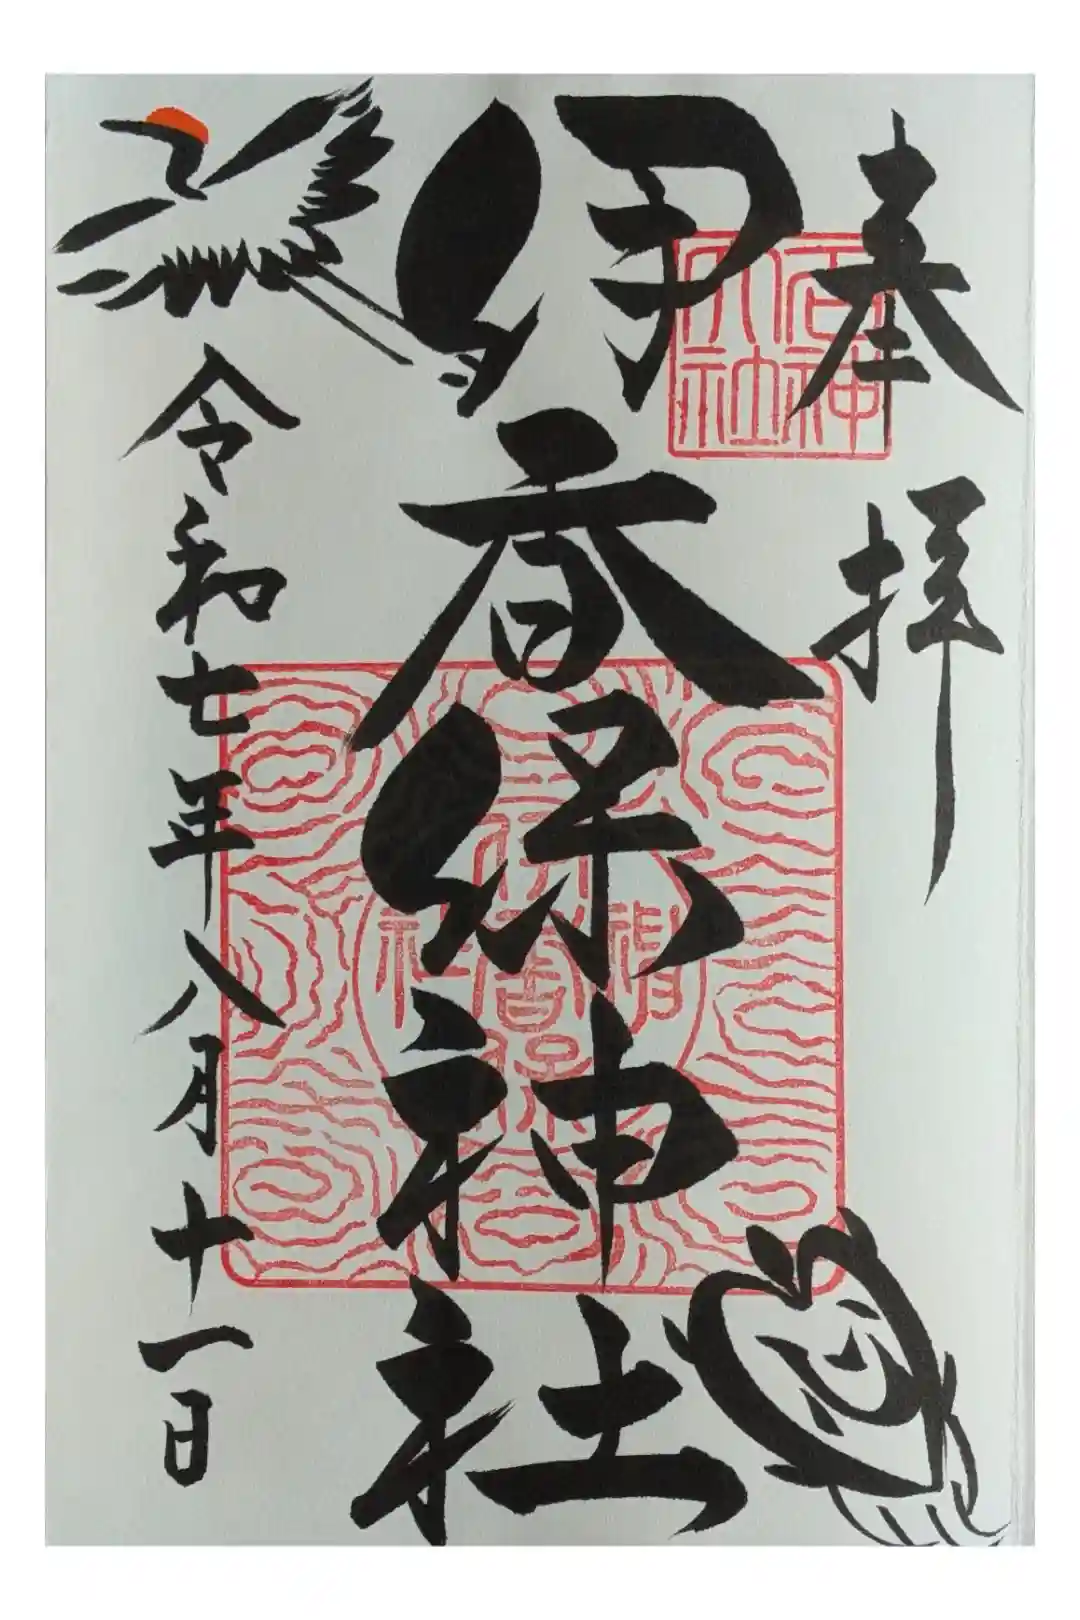 奉拝
伊香保神社
令和七年八月十一日